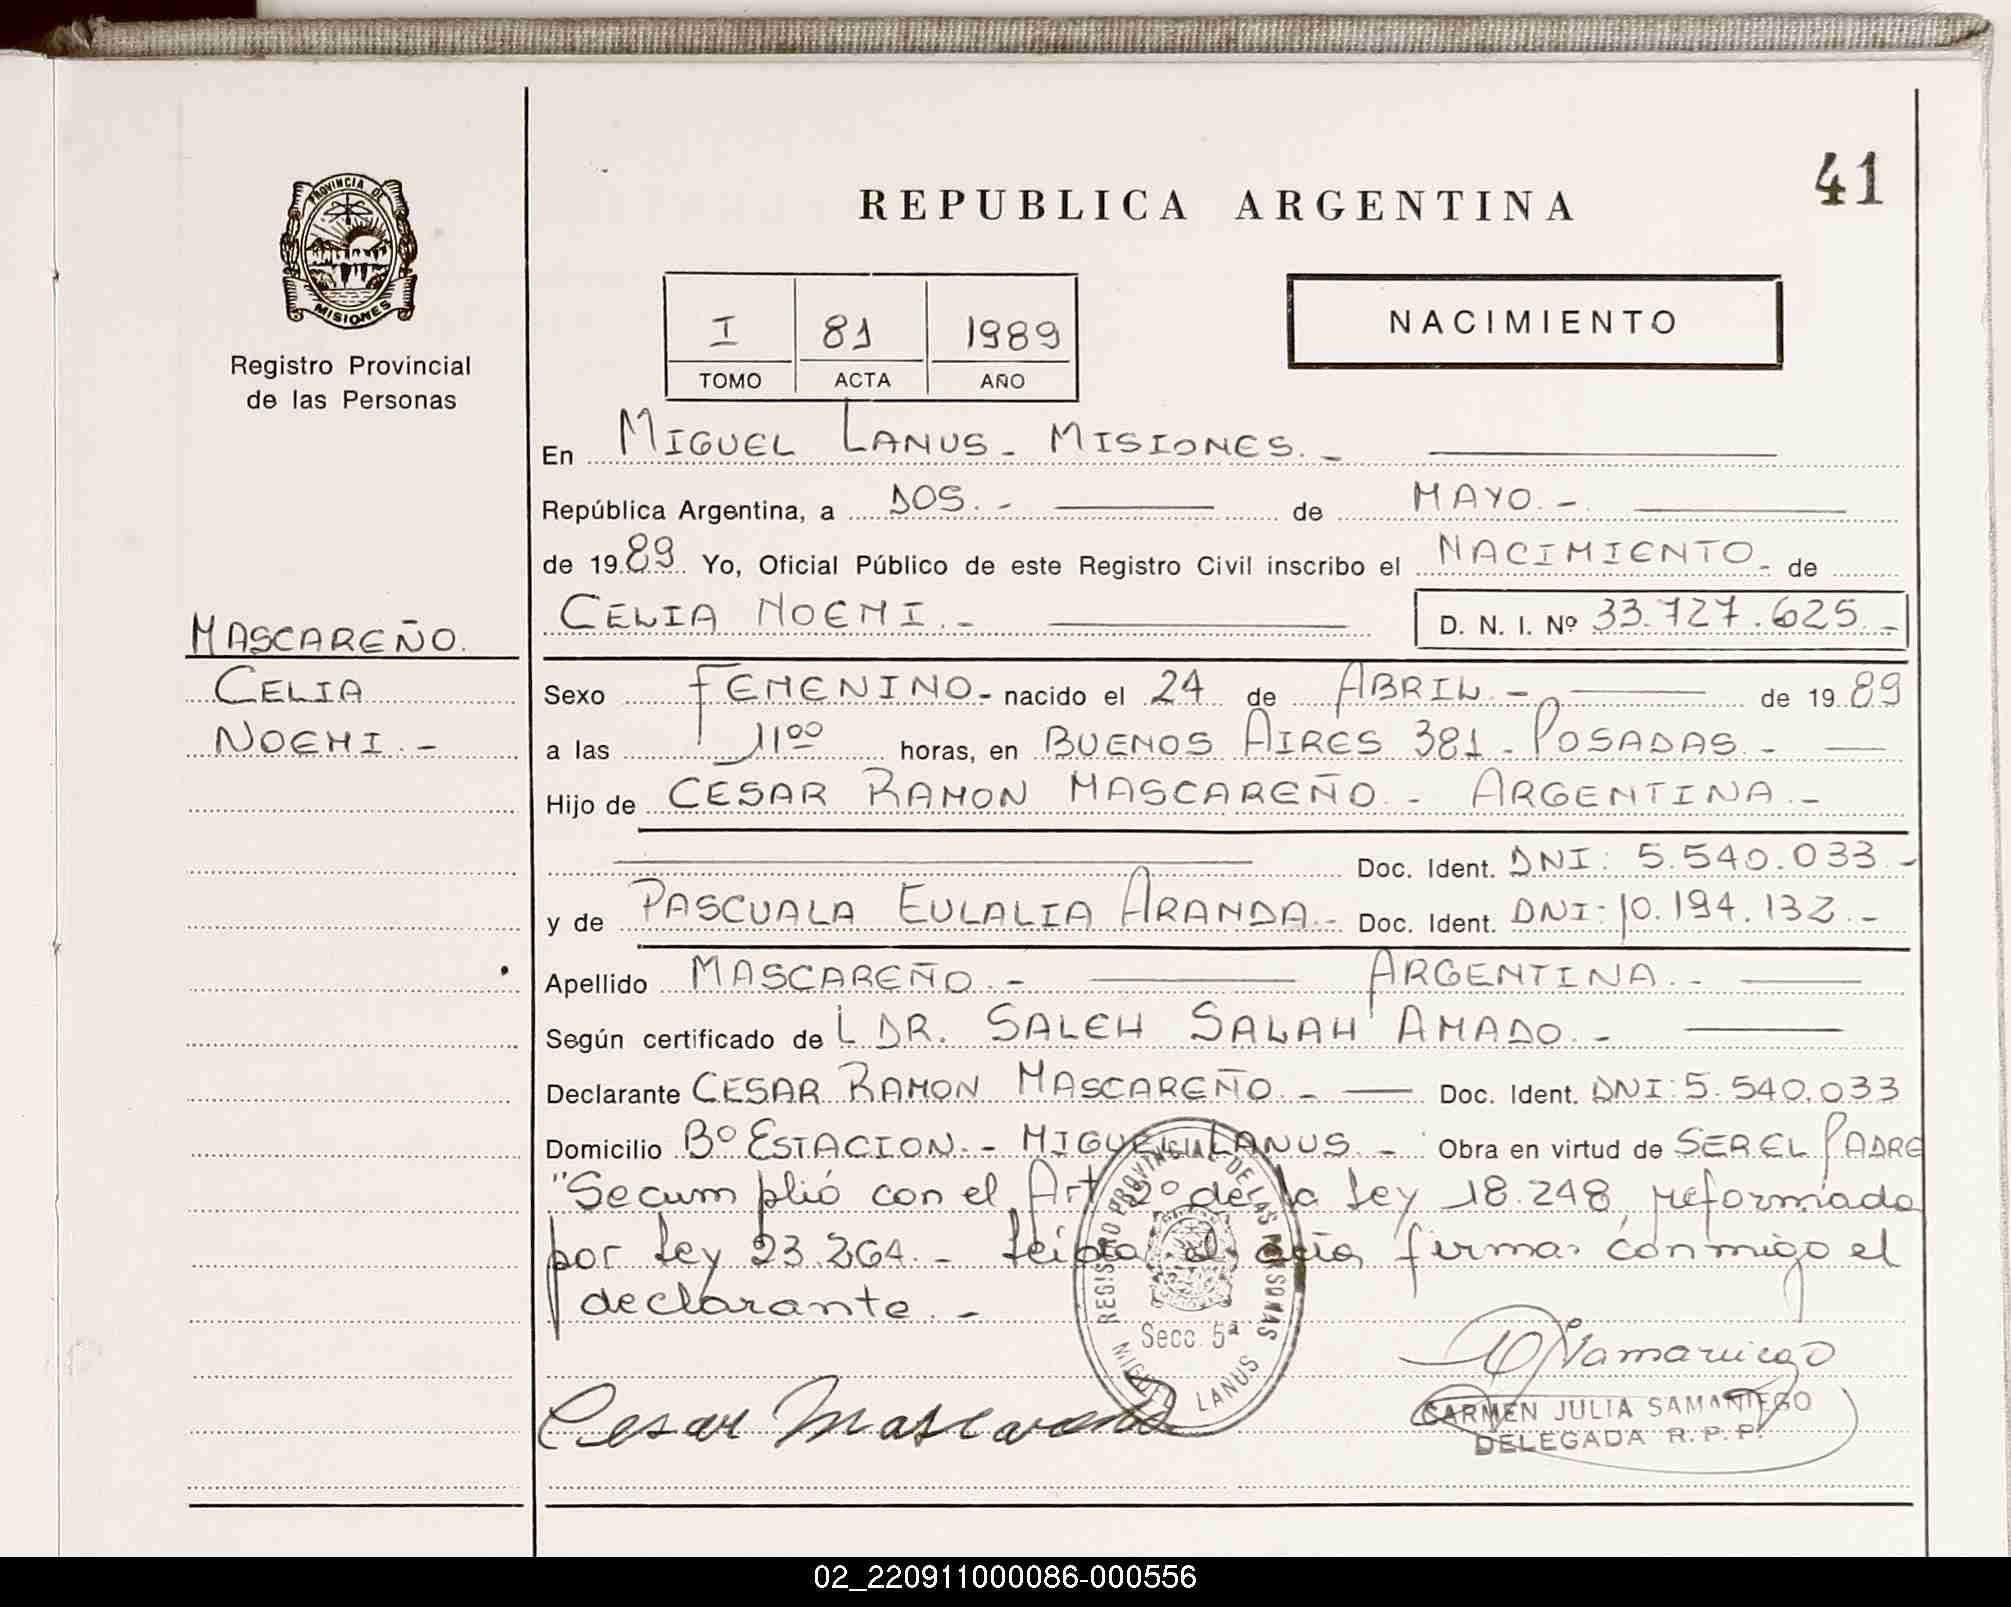 PROVINCIA DE
MISIONES
Registro Provincial
de las Personas
41
REPUBLICA ARGENTINA
I 81 1989
TOMO ACTA AÑO
NACIMIENTO
En MIGUEL LANUS - MISIONES. -
República Argentina, a DOS. - de MAYO. -
de 19 89 Yo, Oficial Público de este Registro Civil inscribo el NACIMIENTO - de
CELIA NOEMI. - D. N. I. Nº 33.727.625 -
MASCAREÑO.
CELIA
NOEMI. -
Sexo FEMENINO - nacido el 24 de ABRIL. - de 19 89
a las 11 00 horas, en BUENOS AIRES 381 - POSADAS. -
Hijo de CESAR RAMON MASCAREÑO. - ARGENTINA. -
Doc. Ident. DNI: 5.540.033 -
y de PASCUALA EULALIA ARANDA. - Doc. Ident. DNI: 10.194.132. -
Apellido MASCAREÑO. - ARGENTINA. -
Según certificado de L DR. SALEH SALAH AMADO. -
Declarante CESAR RAMON MASCAREÑO. - Doc. Ident. DNI: 5.540.033
Domicilio Bº ESTACION. - MIGUEL LANUS. - Obra en virtud de SER EL PADRE
"Se cumplió con el Art 2º de la Ley 18.248, reformada
por Ley 23.264. - Leída el acta, firma conmigo el
declarante. -
REGISTRO PROVINCIAL DE LAS PERSONAS
Secc. 5ª
MIGUEL LANUS
Cesar Mascareño
Samaniego
CARMEN JULIA SAMANIEGO
DELEGADA R. P. P.
02_220911000086-000556